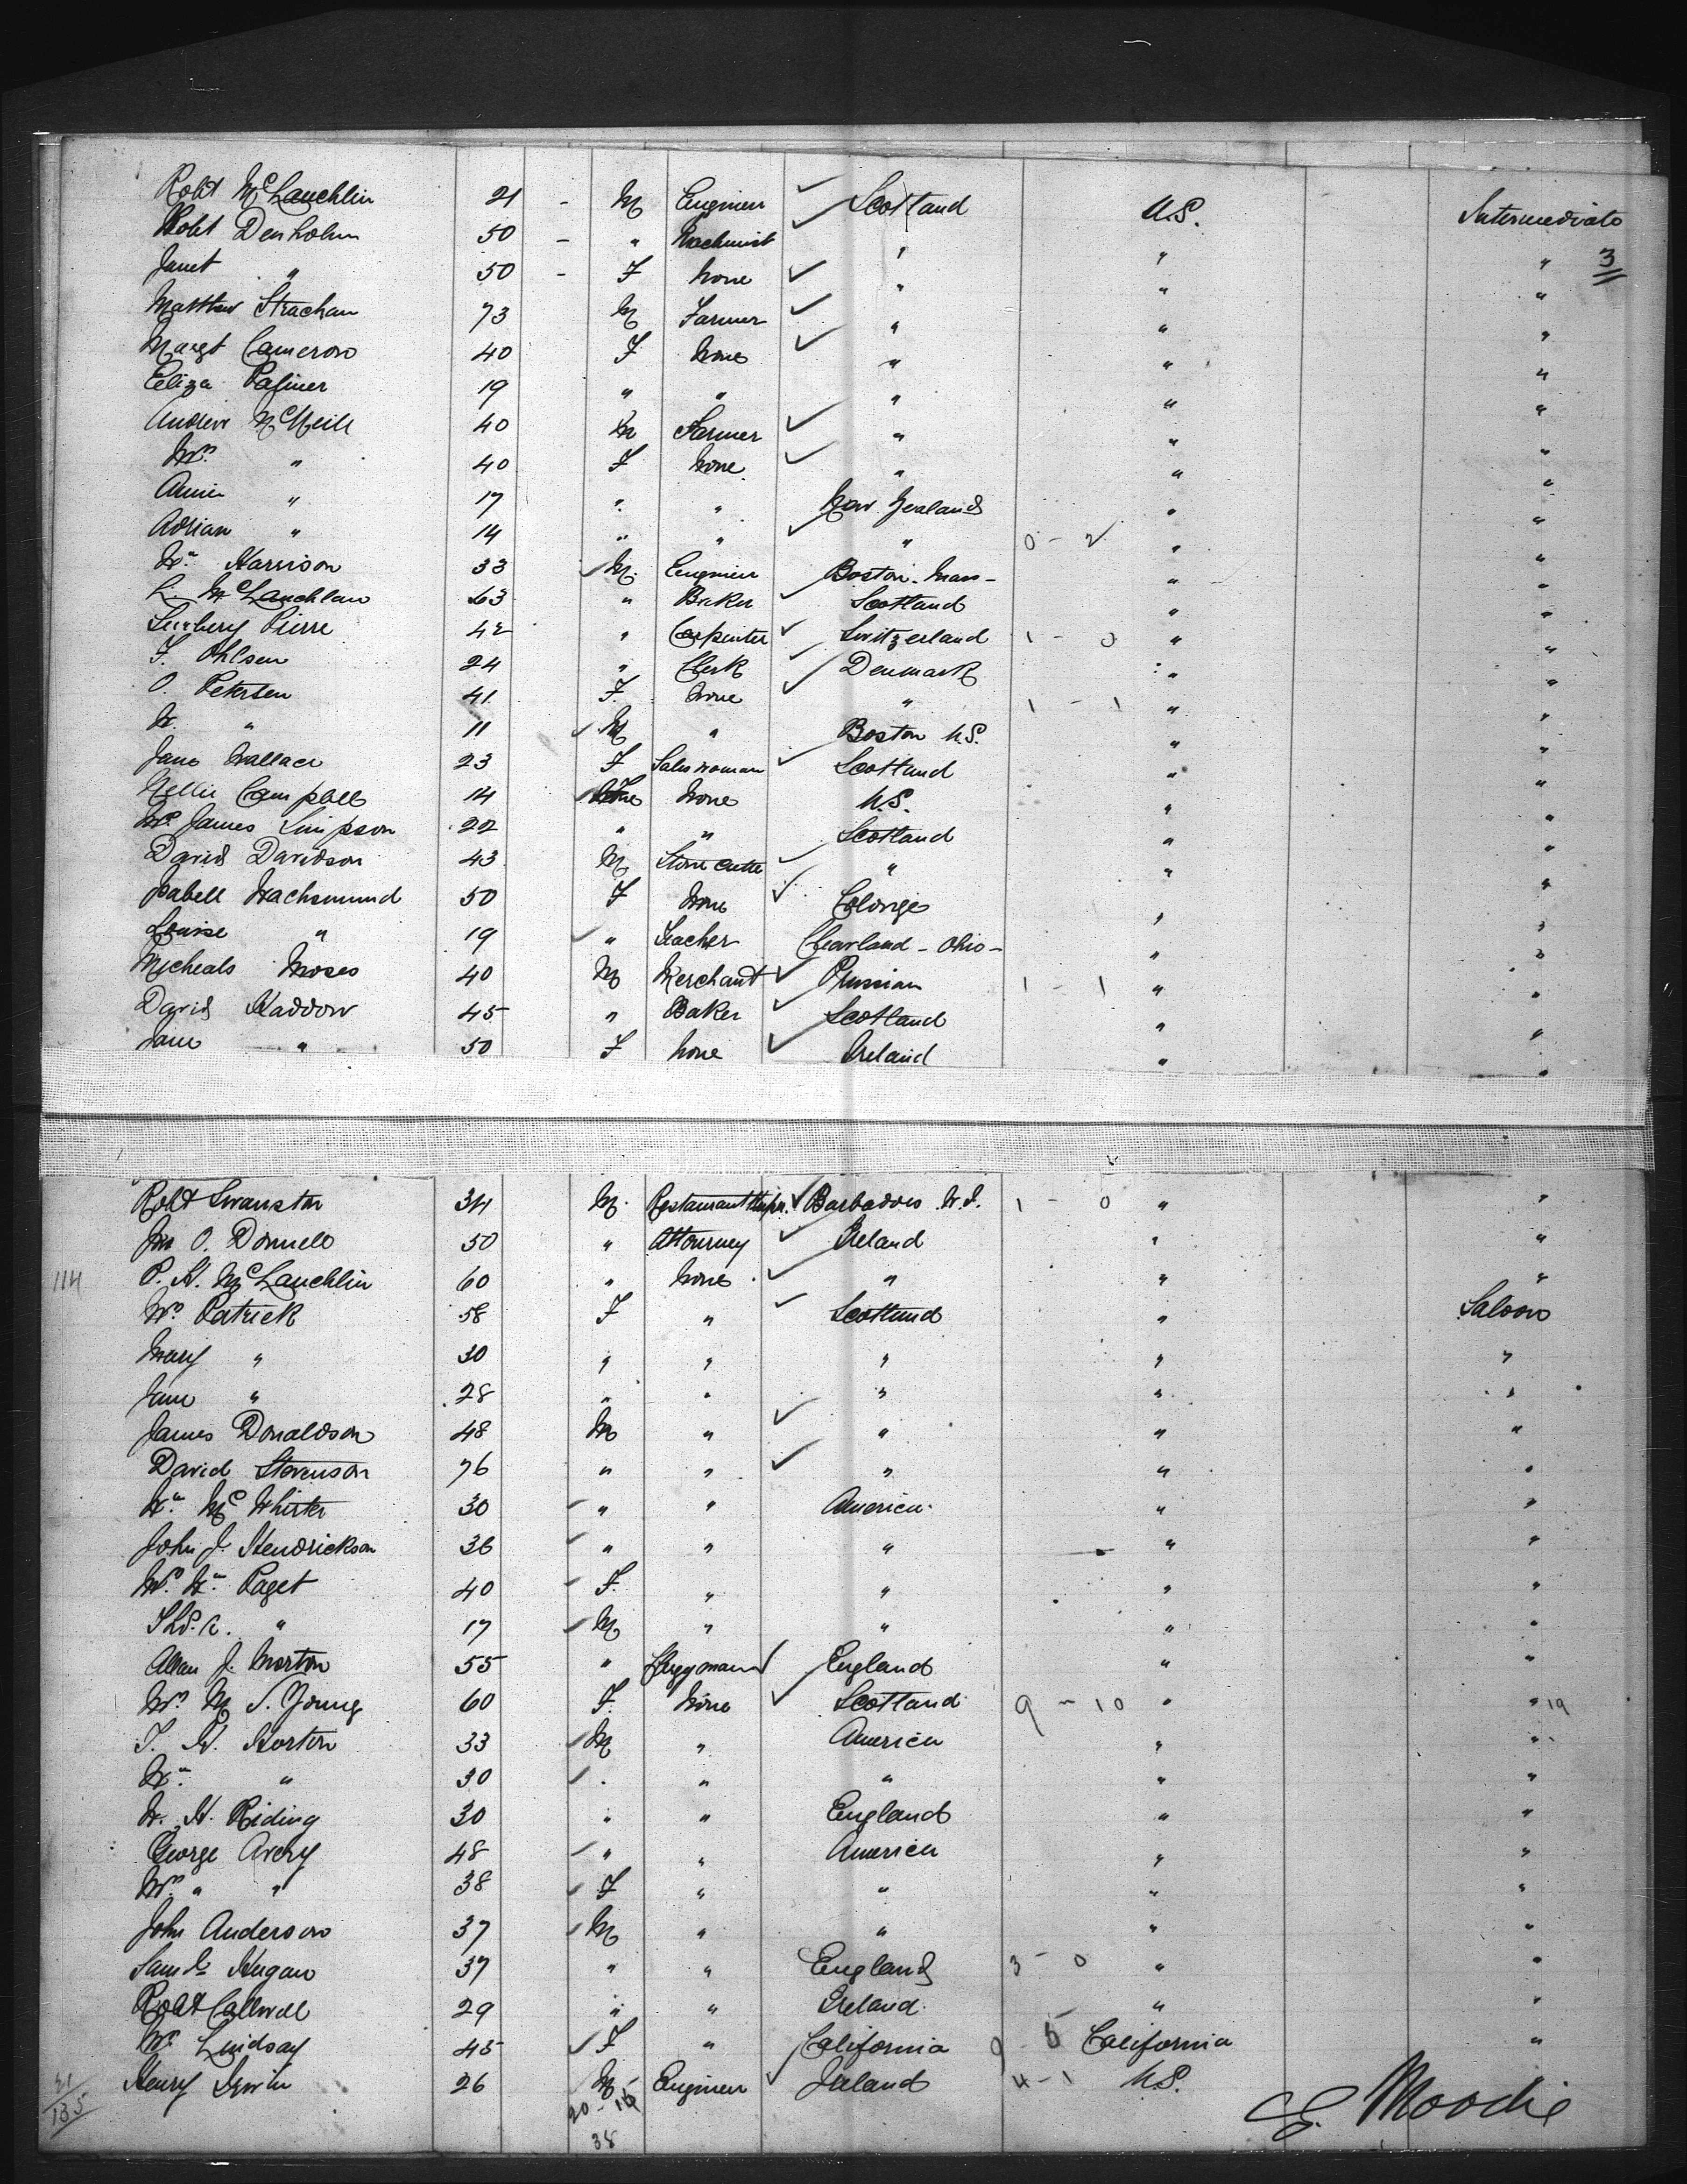 Robt McLauchlin 21 - M Engineer ✓ Scotland U.S. Intermediate
Robt Denholm 50 - " Machinist ✓ " " " 3
Janet " 50 - F None ✓ " " "
Matthew Strachan 73 M Farmer ✓ " " "
Margt Cameron 40 F None ✓ " " "
Eliza 19 " " " " "
Andrew McNeill 40 M Farmer ✓ " " "
Mrs " 40 F None ✓ " " "
Annie " 17 " " New Zealand " "
Adrian " 14 " " ✓ " 0 - 2 " "
Wm Harrison 33 ✓ M. Engineer Boston - Mass - " "
L. McLauchlan 63 " Baker ✓ Scotland " "
Pierre 42 " Carpenter ✓ Switzerland 1 - 0 " "
F. Ohlsen 24 " Clerk ✓ Denmark " "
O. Petersen 41 F. None ✓ " 1 - 1 " "
W. " 11 ✓ M " Boston U.S. " "
Jane Wallace 23 F Saleswoman ✓ Scotland " "
Nellie Campbell 14 ✓ None U.S. " "
Mrs James Simpson 22 " " Scotland " "
David Davidson 43 M Stone Cutter ✓ " " "
Isabell Wachsmund 50 F None ✓ Cologne " "
Louise " 19 ✓ " Teacher Cleavland - Ohio - " "
Micheals Moses 40 M Merchant ✓ Prussian 1 - 1 " "
David Haddow 45 " Baker ✓ Scotland " "
Jane " 50 F None ✓ Ireland " "
Robt Swanston 34 M. ✓ Barbadoes W.I. 1 - 0 " "
Jno O. Donnell 50 " Attourney ✓ Ireland " "
114 P. H. McLauchlin 60 " None ✓ " " "
Mrs Patrick 58 F " ✓ Scotland " Saloon
Mary " 30 " " " " "
Jane " 28 " " " " "
James Donaldson 48 M " ✓ " " "
David Stevenson 76 " " ✓ " " "
Wm McWhirter 30 ✓ " " America " "
John J. Hendrickson 36 ✓ " " " " "
Mrs Wm Paget 40 ✓ F. " " " "
" 17 ✓ M " " " "
Allan J. Morton 55 " Clergyman ✓ England " "
Mrs M. S. Young 60 F. None ✓ Scotland 9 - 10 " " 19
T. H. Horton 33 ✓ M " America " "
Wm " 30 ✓ " " " " "
W. H. Riding 30 " " England " "
George Avery 48 ✓ " " America " "
Mrs " " 38 ✓ F " " " "
John Anderson 37 ✓ M " " " "
Saml Hugan 37 " " England 3 - 0 " "
Robt Callwell 29 " " Ireland " "
Mrs Lindsay 45 ✓ F " California 9 - 5 California "
21/135 Henry Irwin 26 M Engineer ✓ Ireland 4 - 1 U.S.
20 - 18
38
E. Moodie